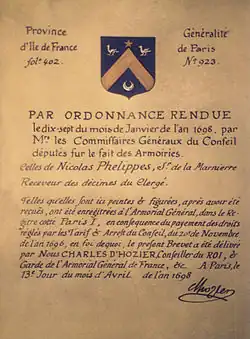 Province
d'Ile de France
folo 402.
Généralité
de Paris
No 923.
PAR ORDONNANCE RENDUE
le dix-sept du mois de Janvier de l'an 1698, par
Mrs les Commissaires Généraux du Conseil
députés sur le fait des Armoiries.
Celles de Nicolas Phelippes, Sr. de la Marnierre
Receveur des décimes du Clergé.
Telles qu'elles sont ici peintes & figurées, après avoir été
reçues, ont été enregistrées à l'Armorial Général, dans le Re-
gistre cotté Paris I, en conséquence du payement des droits
reglés par les Tarif & Arrest du Conseil, du 20e de Novembre
de l'an 1696, en foi de quoi, le présent Brevet a été délivré
par Nous CHARLES D'HOZIER, Conseiller du ROI, &
Garde de l'Armorial Général de France, &c. A Paris, le
13e Jour du mois d'Avril de l'an 1698
d'Hozier